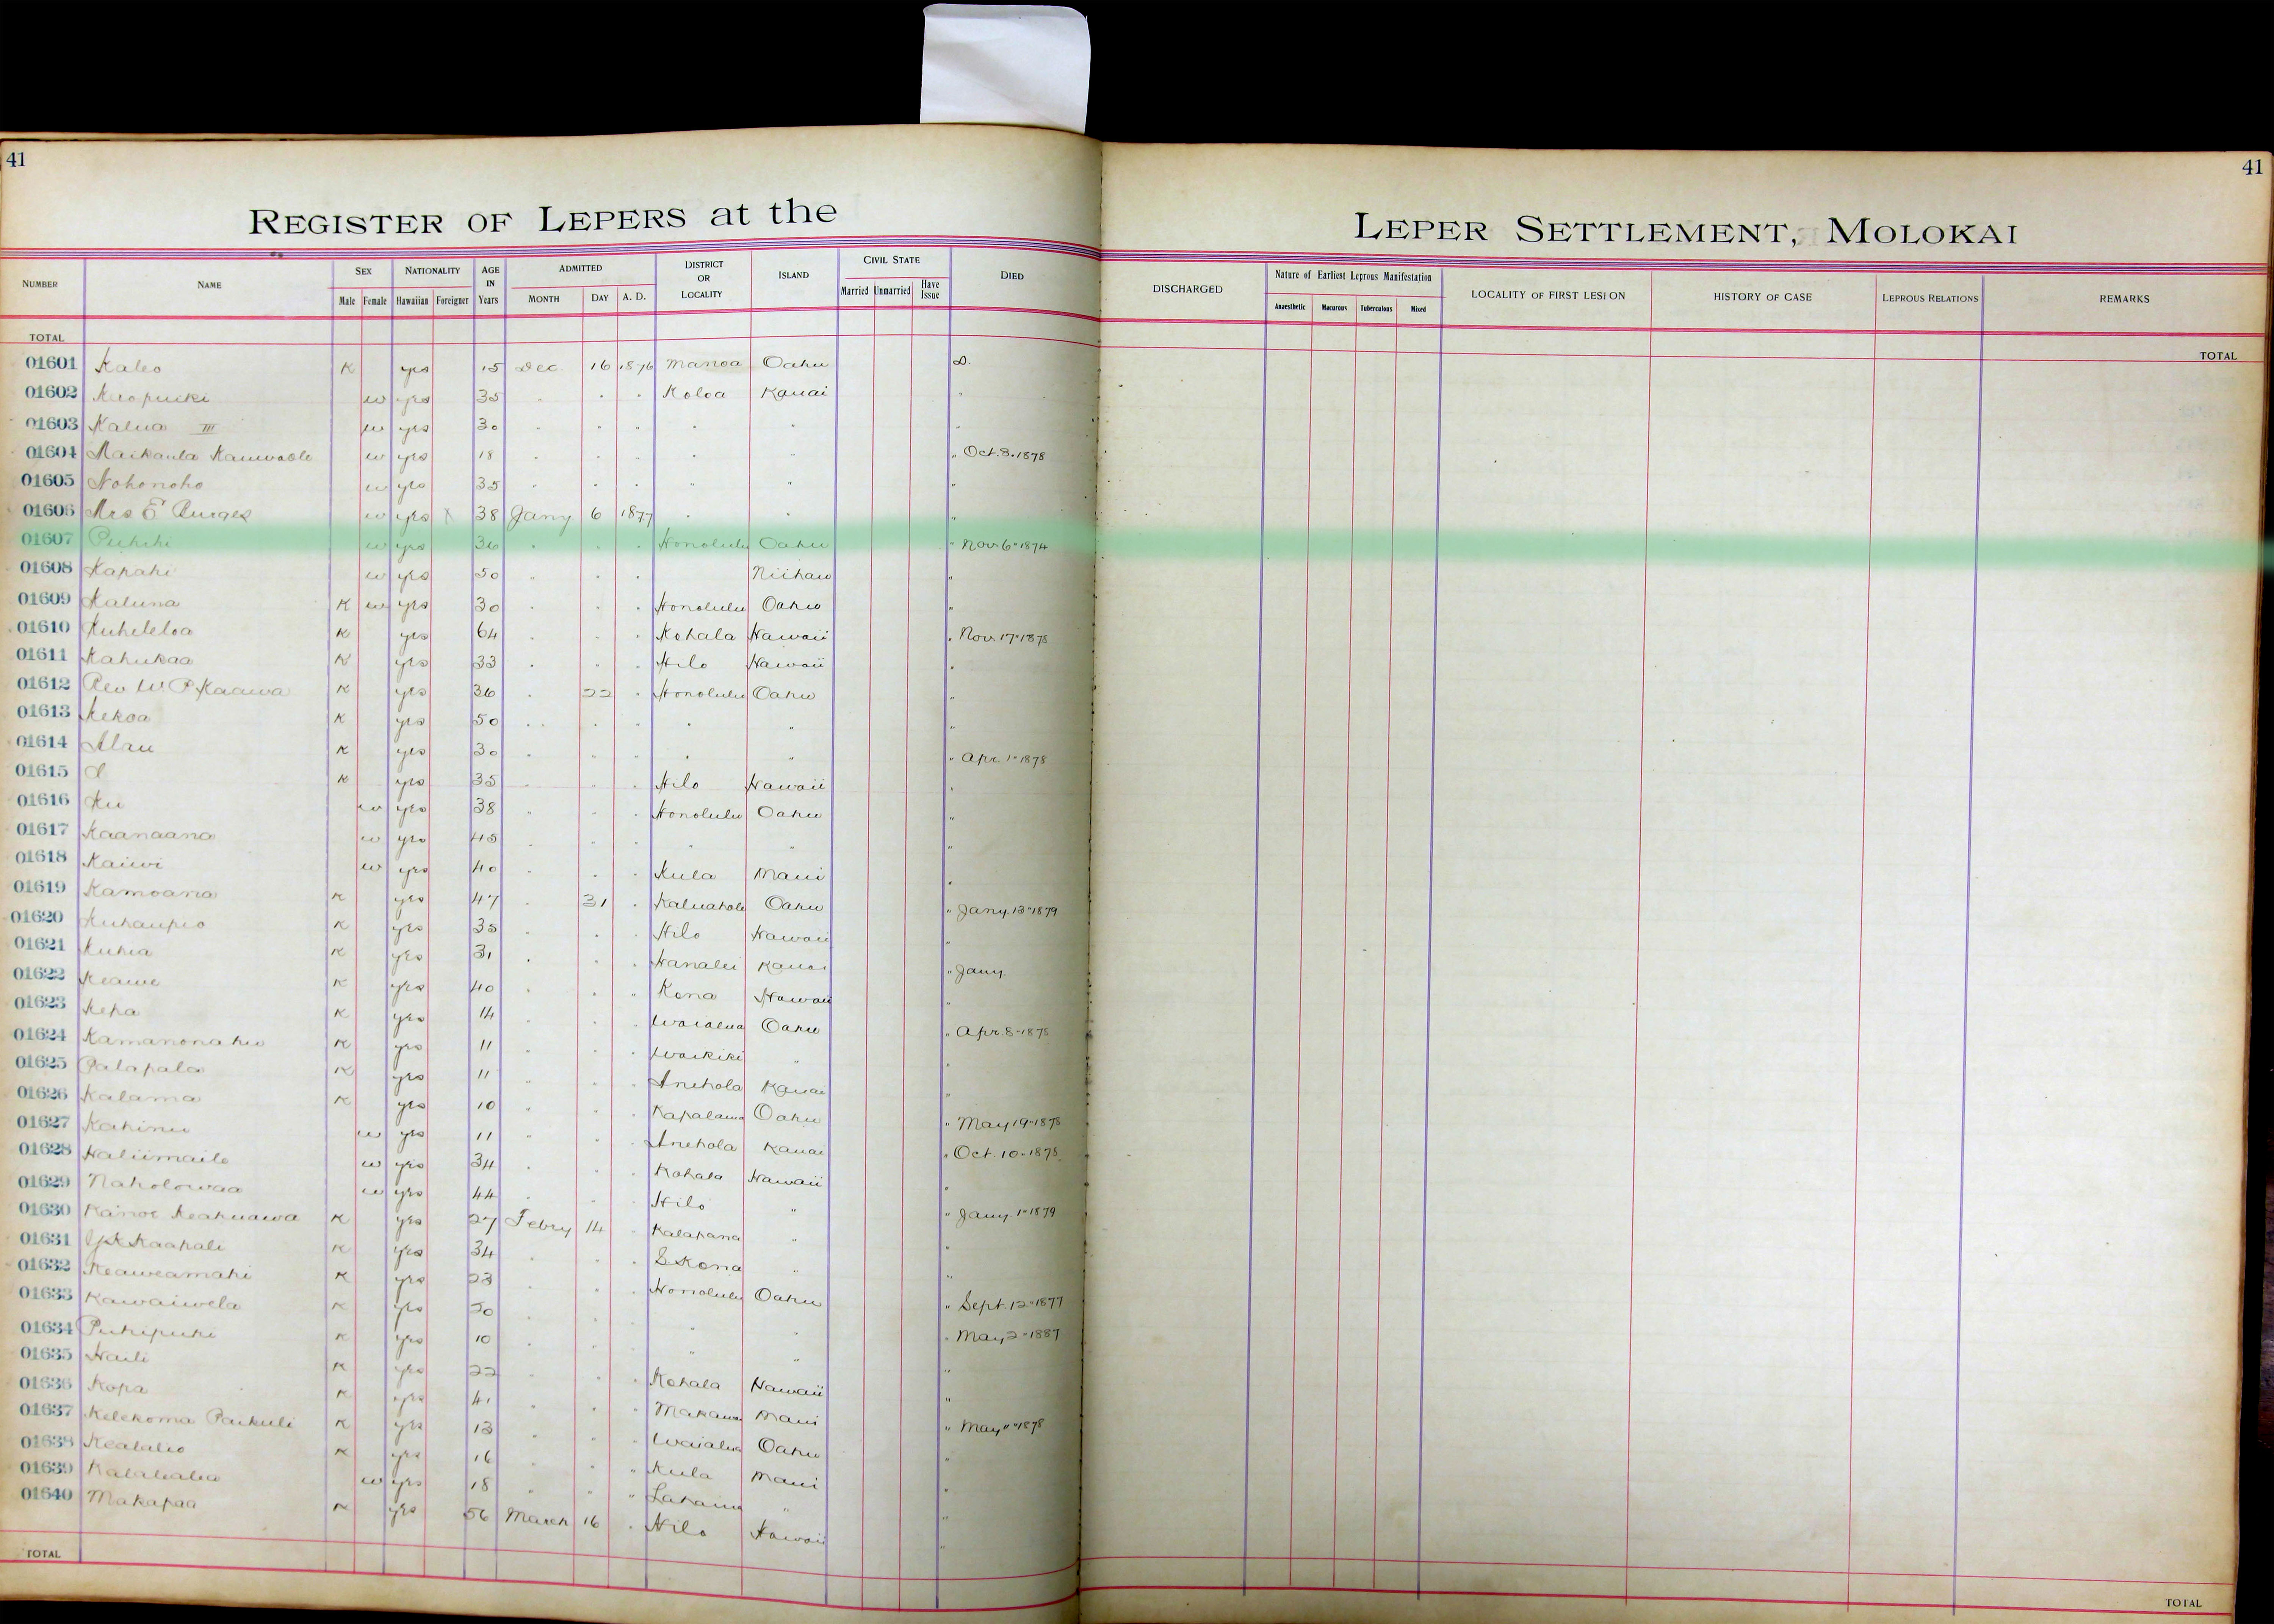 41
41
REGISTER OF LEPERS at the
LEPER SETTLEMENT, MOLOKAI
NUMBER NAME SEX NATIONALITY AGE IN Years ADMITTED DISTRICT OR LOCALITY ISLAND CIVIL STATE DIED DISCHARGED Nature of Earliest Leprous Manifestation LOCALITY OF FIRST LESION HISTORY OF CASE LEPROUS RELATIONS REMARKS
Male Female Hawaiian Foreigner MONTH DAY A. D. Married Unmarried Have Issue Anaesthetic Macurous Tuberculous Mixed
TOTAL TOTAL
01601 Kaleo K yes 15 Dec. 16 1876 Manoa Oahu D.
01602 w yes 35 " " " Koloa Kauai "
01603 Kalua III w yes 30 " " " " " "
01604 Maikaula w yes 18 " " " " " " Oct. 3. 1878
01605 Nohonoho w yes 35 " " " " " "
01606 Mrs E Burges w yes X 38 Jany 6 1877 " " "
01607 Puhihi w yes 36 " " " Honolulu Oahu " Nov. 6" 1874
01608 Kapahi w yes 50 " " " Niihau "
01609 Kaluna K w yes 30 " " " Honolulu Oahu "
01610 Kuheleloa K yes 64 " " " Kohala Hawaii " Nov. 17" 1878
01611 Kahukaa K yes 33 " " " Hilo Hawaii "
01612 Rev W. P. Kaawa K yes 36 " 22 " Honolulu Oahu "
01613 Kekoa K yes 50 " " " " " "
01614 Alau K yes 30 " " " " " " Apr. 1" 1878
01615 K yes 35 " " " Hilo Hawaii "
01616 Ku w yes 38 " " " Honolulu Oahu "
01617 Kaanaana w yes 45 " " " " " "
01618 Kaiwi w yes 40 " " " Kula Maui "
01619 Kamoana K yes 47 " 31 " Kaluahole Oahu " Jany. 13" 1879
01620 Kuhaupio K yes 35 " " " Hilo Hawaii "
01621 Kuhia K yes 31 " " " Hanalei Kauai " Jany.
01622 Keawe K yes 40 " " " Kona Hawaii "
01623 Kepa K yes 14 " " " Waialua Oahu " Apr. 8" 1878
01624 Kamanonahu K yes 11 " " " Waikiki " "
01625 Palapala K yes 11 " " " Anehola Kauai "
01626 Kalama K yes 10 " " " Kapalama Oahu " May 19" 1878
01627 Kahinu w yes 11 " " " Anehola Kauai " Oct. 10" 1878
01628 Haliimaile w yes 34 " " " Kohala Hawaii "
01629 Naholowaa w yes 44 " " " Hilo " " Jany. 1" 1879
01630 Kainoe Keahuawa K yes 27 Febry 14 " Kalapana " "
01631 Kaahale K yes 34 " " " S Kona " "
01632 Keaweamahi K yes 23 " " " Honolulu Oahu " Sept. 12" 1877
01633 Kawaiwela K yes 20 " " " " " " May 2" 1887
01634 Puhipuhi K yes 10 " " " " " "
01635 Haili K yes 22 " " " Kohala Hawaii "
01636 Kopa K yes 41 " " " Makawao Maui " May 11" 1878
01637 Kelekoma Paikuli K yes 13 " " " Waialua Oahu "
01638 Kealalio K yes 16 " " " Kula Maui "
01639 w yes 18 " " " Lahaina " "
01640 Makapaa K yes 56 March 16 " Hilo Hawaii "
TOTAL TOTAL